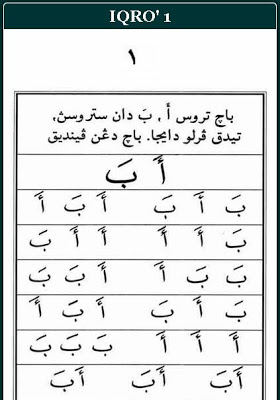 IQRO' 1
١
باچ تروس أَ ، بَ دان ستروسڽ,
تيدق ڤرلو دايجا. باچ دڠن ڤينديق
أَ بَ
بَ أَ بَ أَ بَ أَ
بَ أَ أَ أَ أَ بَ
بَ بَ أَ أَ بَ بَ
بَ أَ بَ أَ بَ أَ
أَ أَ أَ بَ بَ بَ
أَبَ أَبَ أَبَ